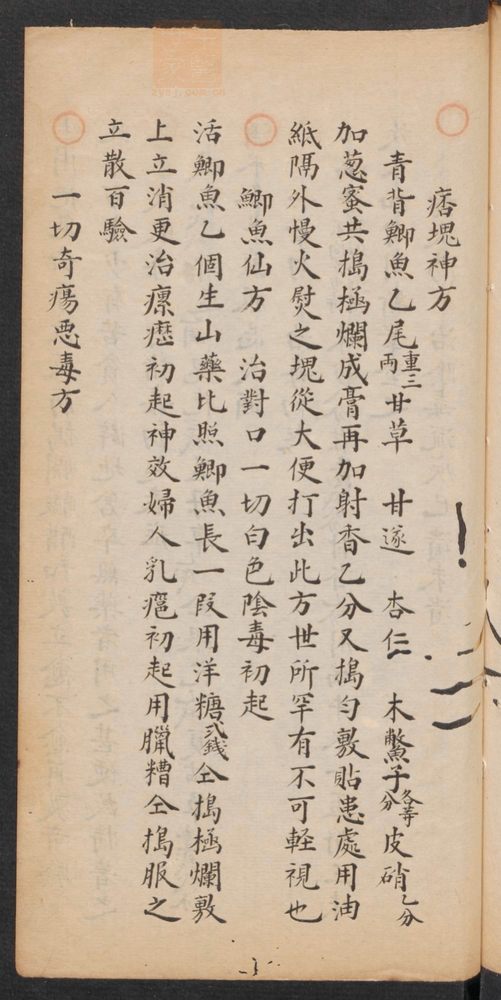 痞塊神方
青背鯽魚乙尾重三兩 甘草 甘遂 杏仁 木鱉子各等分 皮硝乙分
加葱蜜共搗極爛成膏再加射香乙分又搗勻敷貼患處用油
紙隔外慢火熨之塊從大便打出此方世所罕有不可軽視也
鯽魚仙方 治對口一切白色陰毒初起
活鯽魚乙個生山藥比照鯽魚長一段用洋糖弍錢仝搗極爛敷
上立消更治瘰癧初起神效婦人乳癰初起用臘糟仝搗服之
立散百驗
一切奇瘍惡毒方